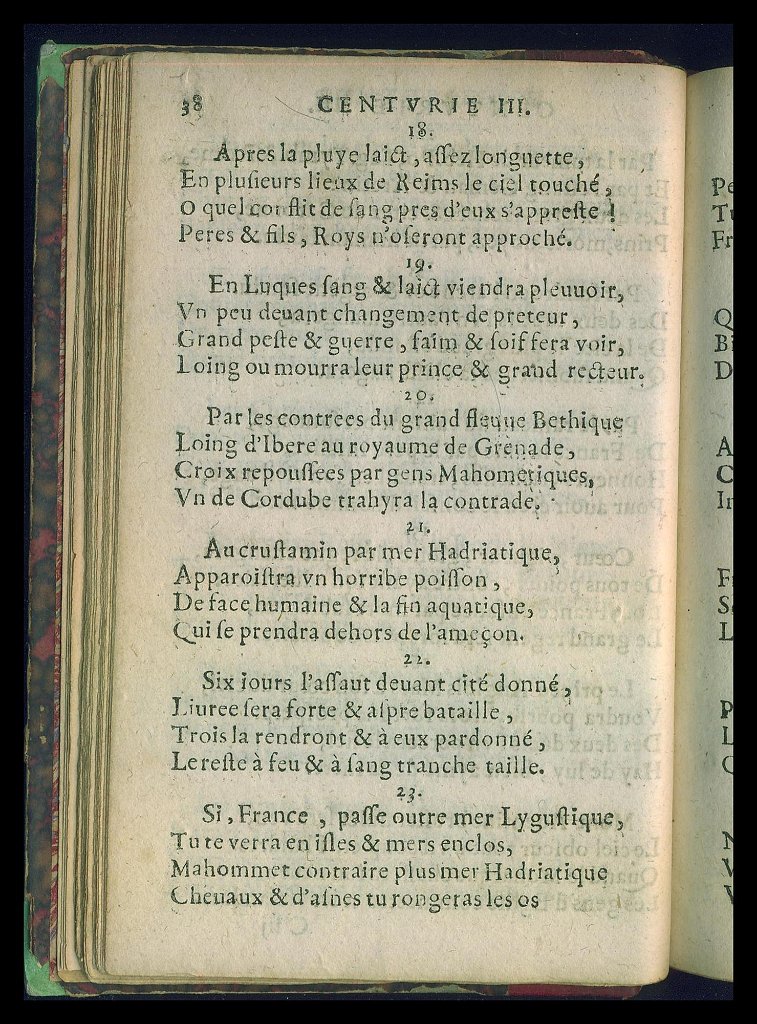 38 CENTVRIE III.
18.
Apres la pluye laict, assez longuette,
En plusieurs lieux de Reims le ciel touché,
O quel conflit de sang pres d'eux s'appreste!
Peres & fils, Roys n'oseront approché.
19.
En Luques sang & laict viendra pleuuoir,
Vn peu deuant changement de preteur,
Grand peste & guerre, faim & soif fera voir,
Loing ou mourra leur prince & grand recteur.
20.
Par les contrees du grand fleuue Bethique
Loing d'Ibere au royaume de Grenade,
Croix repoussees par gens Mahometiques,
Vn de Cordube trahyra la contrade.
21.
Au crustamin par mer Hadriatique,
Apparoistra vn horribe poisson,
De face humaine & la fin aquatique,
Qui se prendra dehors de l'ameçon.
22.
Six iours l'assaut deuant cité donné,
Liuree sera forte & aspre bataille,
Trois la rendront & à eux pardonné,
Le reste à feu & à sang tranche taille.
23.
Si, France, passe outre mer Lygustique,
Tu te verra en isles & mers enclos,
Mahommet contraire plus mer Hadriatique
Cheuaux & d'asnes tu rongeras les os